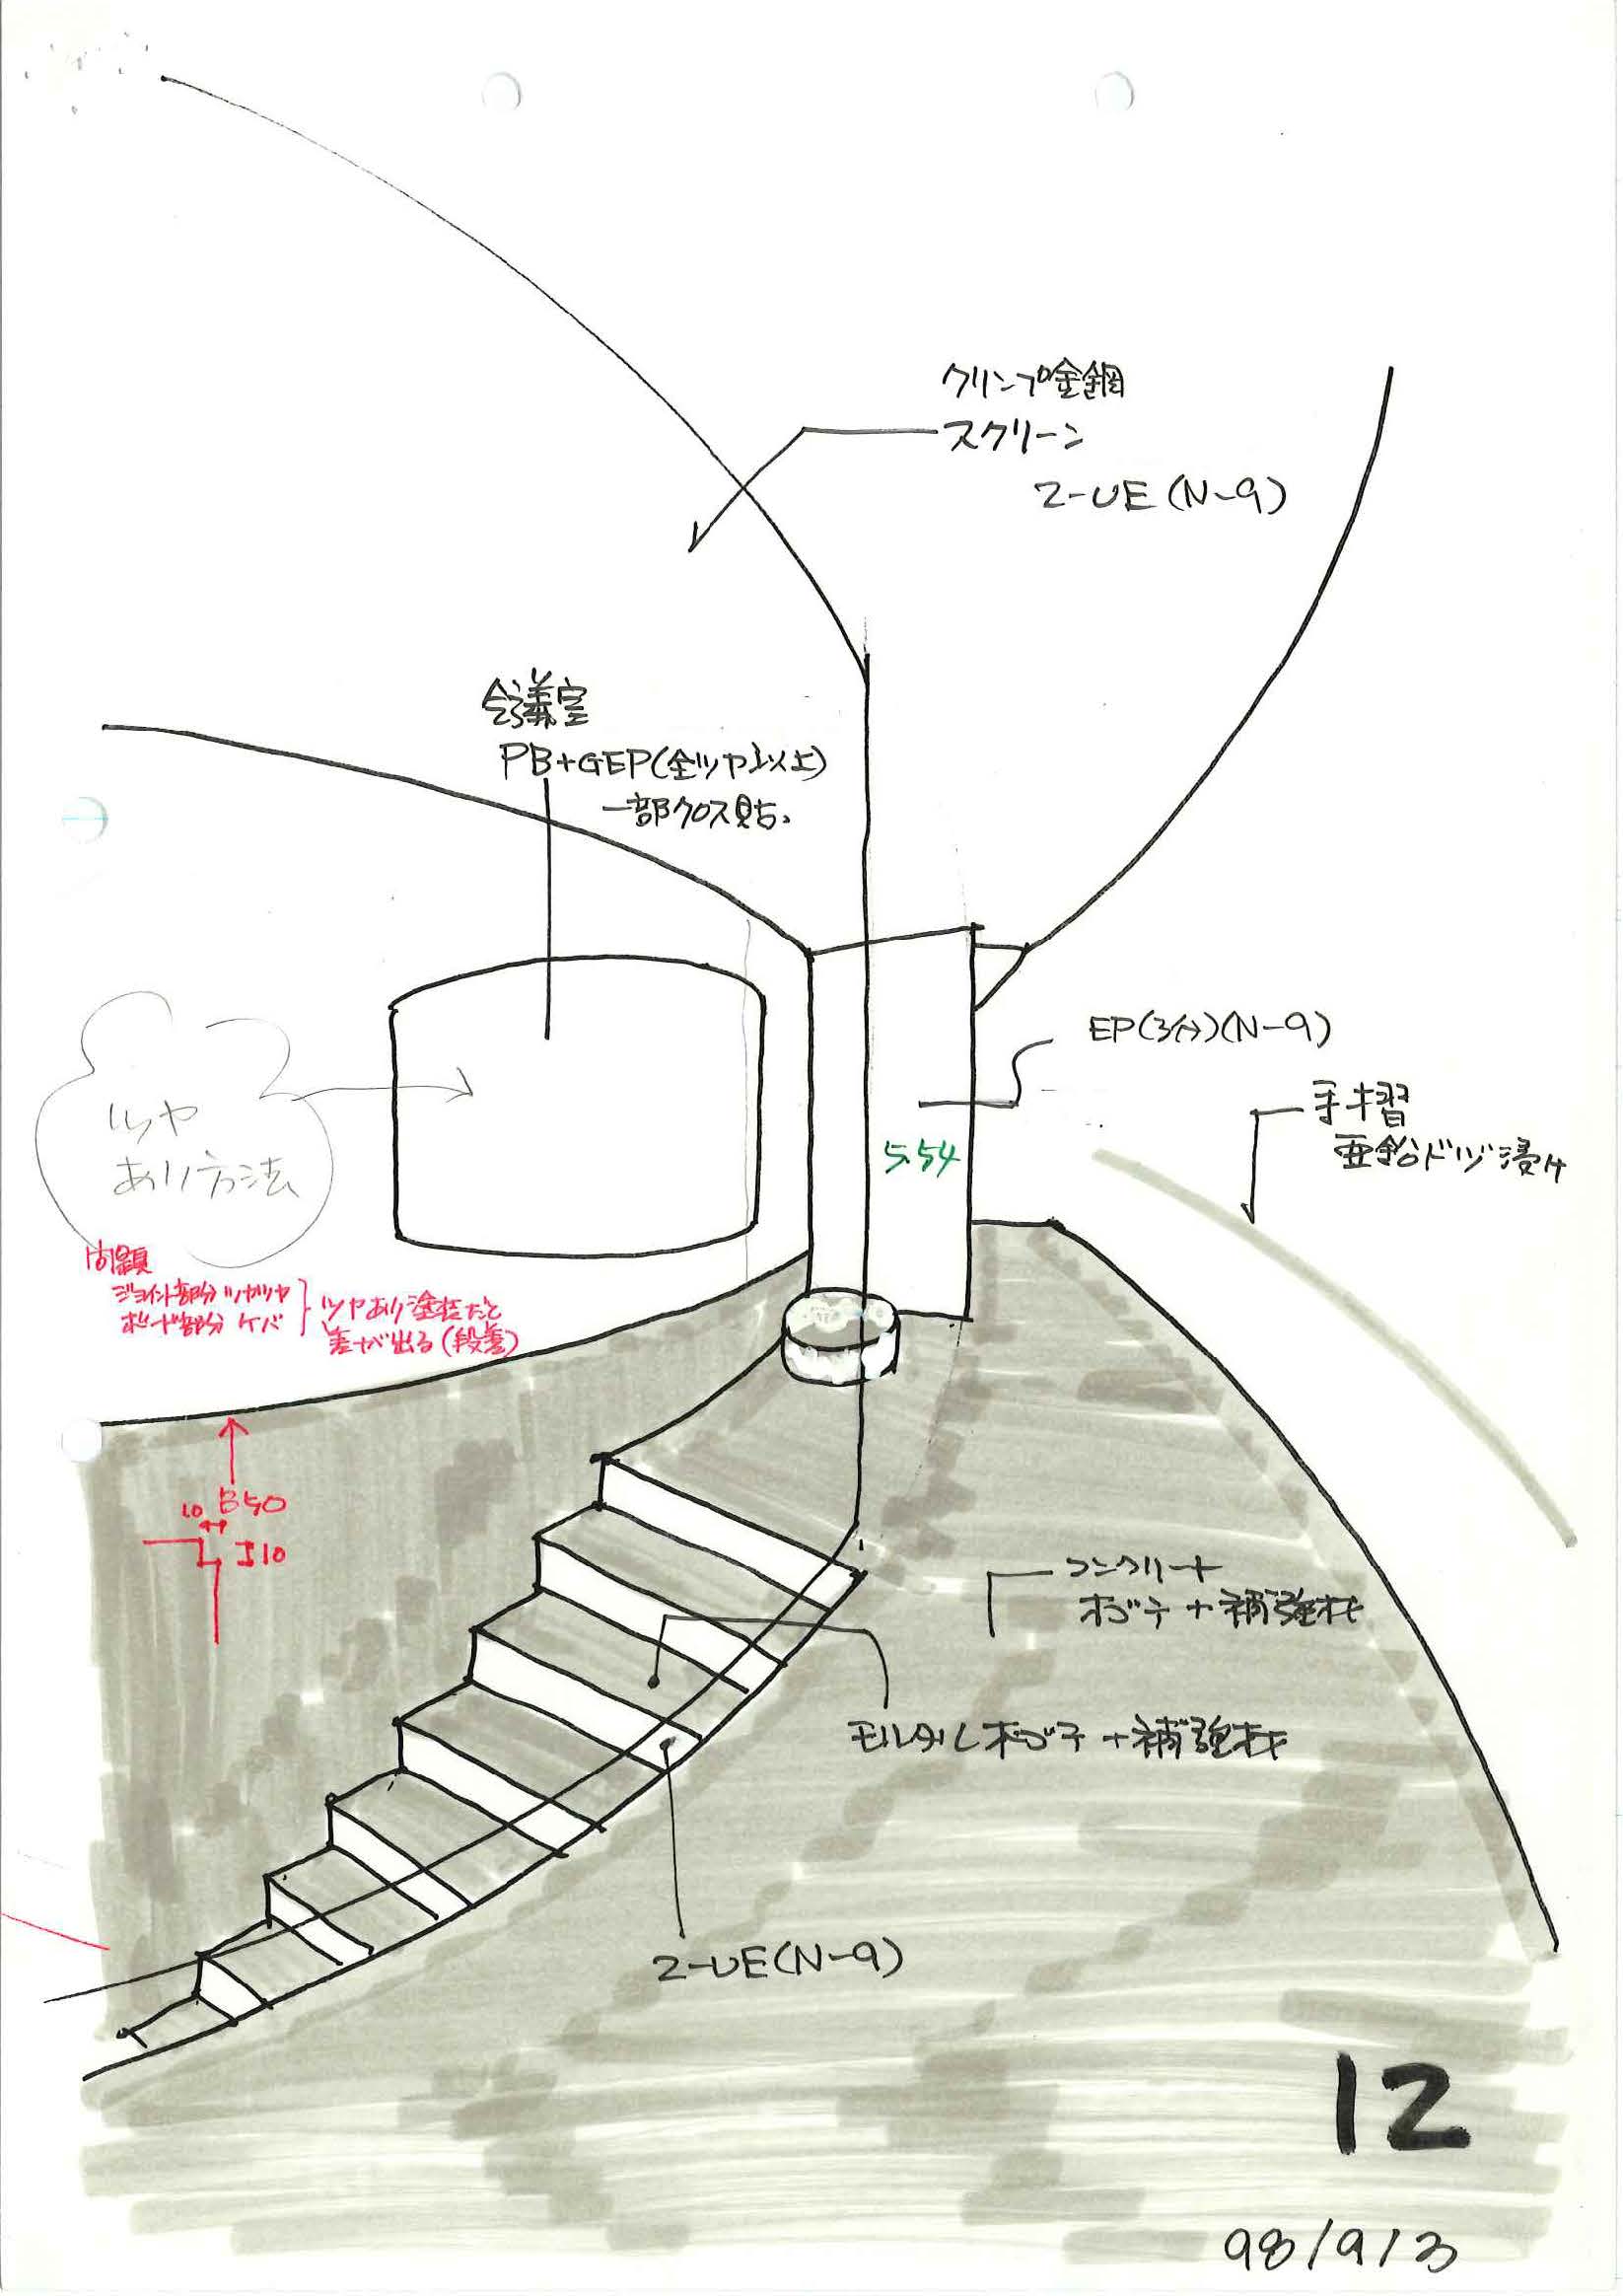 クリンプ金網
スクリーン
2-UE(N-9)
会議室
PB+GEP(全ツヤ以上)
一部クロス貼。
EP(3分)(N-9)
手摺
亜鉛ドブ漬け
ツヤ
あり方法
554
問題
ジョイント部分 ツヤツヤ
ボード部分 ケバ
ツヤあり塗装だと
差が出る(段差)
10 B50
10
コンクリート
木ゴテ+補強材
モルタル木ゴテ+補強材
2-UE(N-9)
12
98/9/3